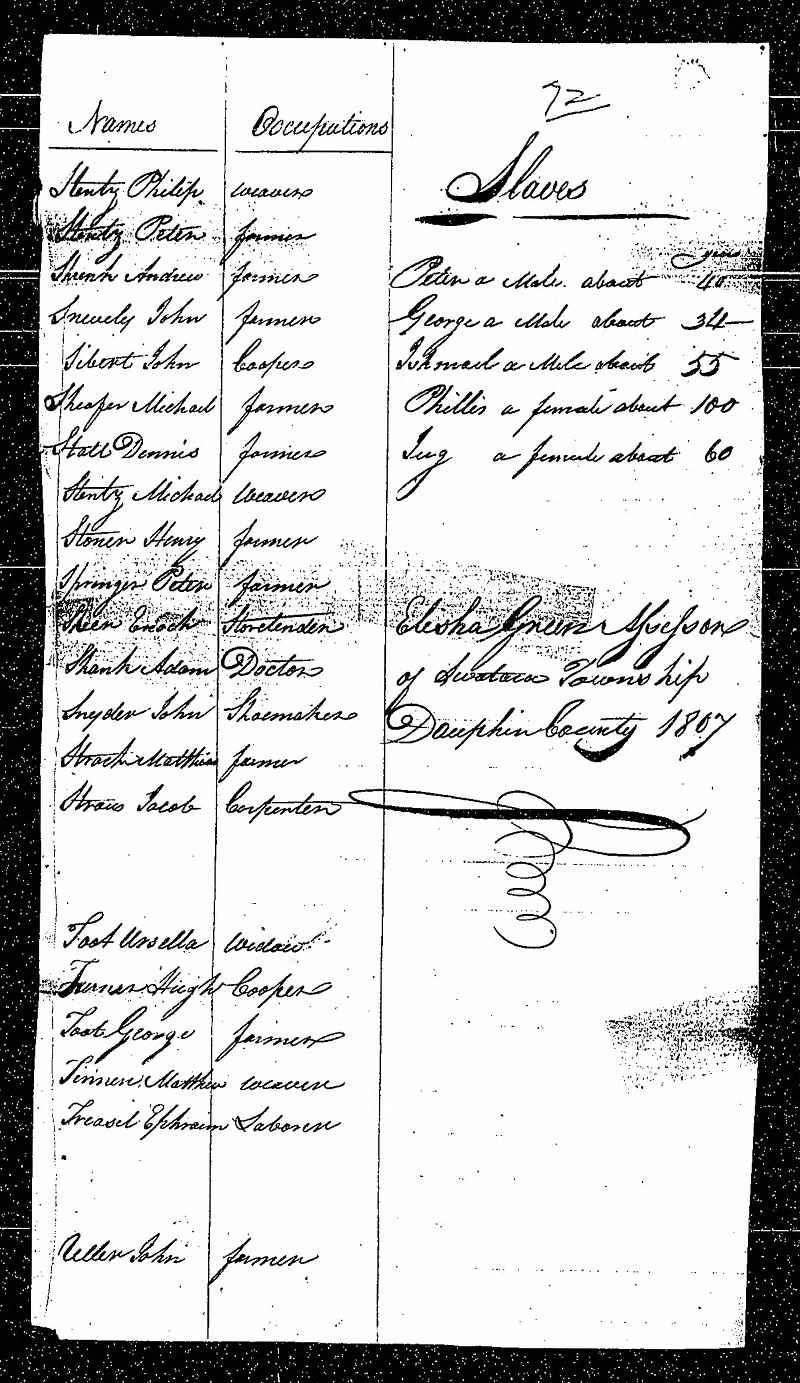 72
Names Occupations
Slaves
Stentz Philip weaver
Stentz Peter farmer
Shenk Andrew farmer
Snevely John farmer
Sibert John Cooper
Sheafer Michael farmer
Stall Dennis farmer
Stentz Michael weaver
Stoner Henry farmer
Springer Peter farmer
Skeer Enoch Storetender
Shank Adam Doctor
Snyder John Shoemaker
Matthias farmer
Straw Jacob Carpenter
Toot Ursella widow
Turner Hugh Cooper
Toot George farmer
Tinner Matthew weaver
Treasil Ephraim Laborer
Uller John farmer
Peter a Male about 40
George a Male about 34
Ishmael a Male about 55
Phillis a female about 100
Jug a female about 60
Elisha Green Assessor
of Swatara Township
Dauphin County 1807